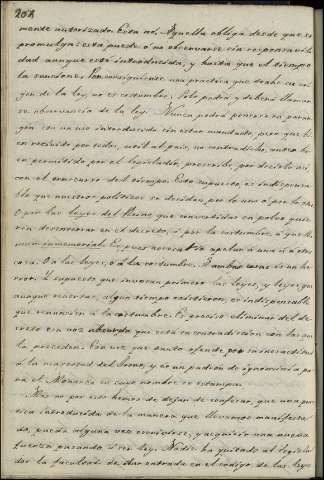 208
mente autorizado. Esta no. Aquella obliga desde que se
promulga: esta puede ó no observarse sin responsavili-
dad aunque esté introducida, y hasta que el tiempo
la sancione. Por consiguiente una practica que trahe su ori-
gen de la ley, no es costumbre. Solo podrá y deberá llamar-
se observancia de la ley. Nunca podrá
con un uso introducido sin estar mandado, pero que bi-
en recivido por todos, util al pais, no contradicho, antes bi-
en permitido por el legislador, prescribe por decirlo asi
con el transcurso del tiempo. Esto supuesto, es indispensa-
ble que nuestros politicos se decidan por lo uno ó por lo otro.
O por las leyes del Reino que convertidas en polvo quie-
ren desenterrar en el decreto, ó por la costumbre á que lla-
man inmemorial. Es pues necesario apelar á una ú á otra
cosa. O á las leyes, ó á la costumbre. A ambas cosas es un he-
rror. Y supuesto que invocan primero las leyes, y leyes que
aunque rancias, algun tiempo existieron, es indispensable
que renuncien á la costumbre. Es preciso eliminar del de-
creto esa voz absurda que está en contradiccion con las que
la preceden. Esa voz que tanto ofende por
á la magestad del Trono, y es un padron de ignominia pa-
ra el Monarca en cuyo nombre se estampa.
Mas no por esto hemos de dejar de confesar, que una prac-
tica introducida de la manera que llevamos manifesta-
do, pueda alguna vez escribirse, y adquirir una nueva
fuerza pasando á ser ley. Nadie ha quitado al legisla-
dor la facultad de dar entrada en el codigo de las leyes